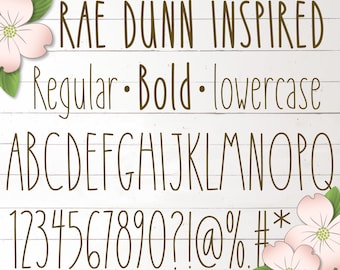 RAE DUNN INSPIRED
Regular • Bold • lowercase
ABCDEFGHIJKLMNOPQ
1234567890?!@%.#*